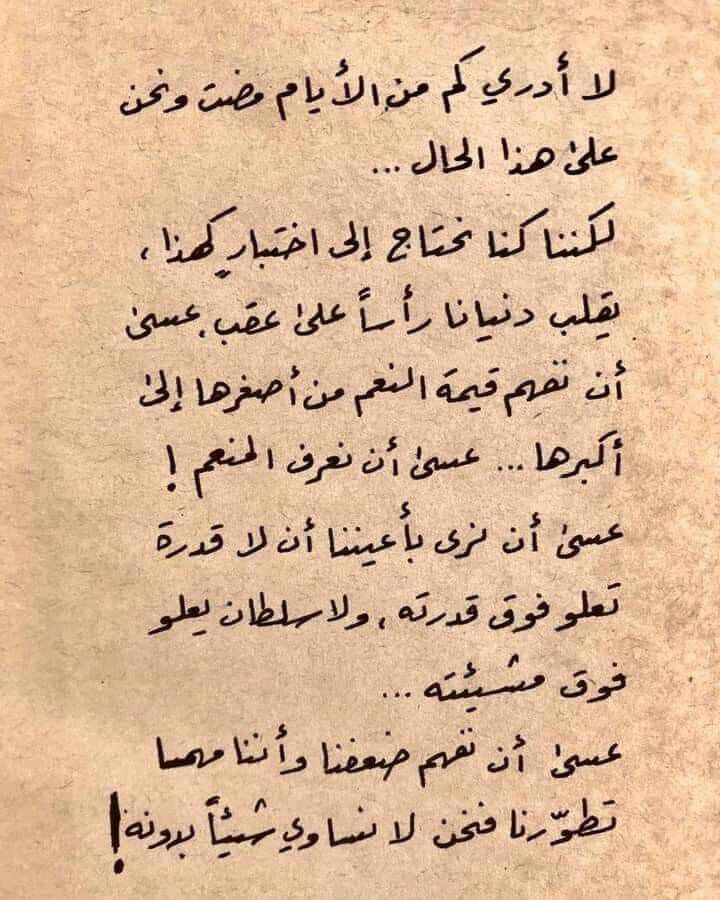 لا أدري كم من الأيام مضت ونحن
على هذا الحال ...
لكننا كنا نحتاج إلى اختبارٍ كهذا ،
يقلب دنيانا رأساً على عقب، عسى
أن نفهم قيمة النعم من أصغرها إلى
أكبرها ... عسى أن نعرف المنعم !
عسى أن نرى بأعيننا أن لا قدرة
تعلو فوق قدرته ، ولا سلطان يعلو
فوق مشيئته ...
عسى أن نفهم ضعفنا وأننا مهما
تطوّرنا فنحن لا نساوي شيئاً بدونه !